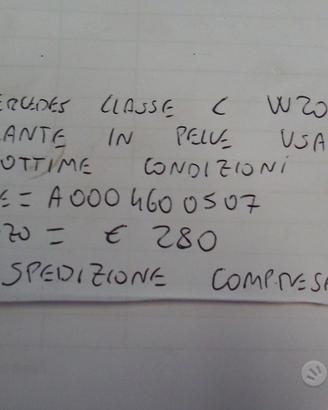 ERCEDES CLASSE C W20
ANTE IN PELLE USA
OTTIME CONDIZIONI
E = A000 460 0507
ZO = € 280
SPEDIZIONE COMPRESA